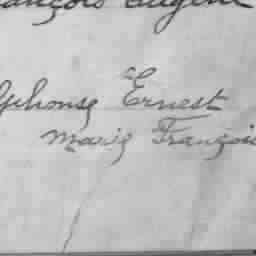 ançois Eugène
lphonse Ernest
Marie Françoi